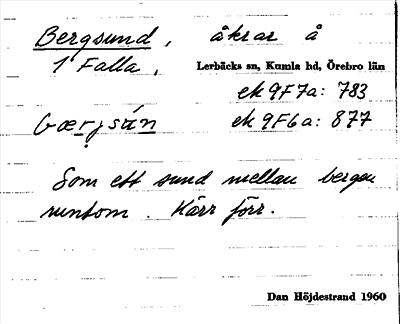 Bergsund, åkrar å
1 Falla,
Lerbäcks sn, Kumla hd, Örebro län
ek 9F7a: 783
Gærjsún ek 9F6a: 877
Som ett sund mellan bergen
runtom. Kärr förr.
Dan Höjdestrand 1960